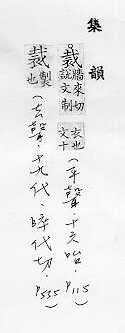 集韻
裁牆來切說文制衣也文十(平聲·十六咍·P115)
裁製也(去聲·十九代·昨代切·P535)